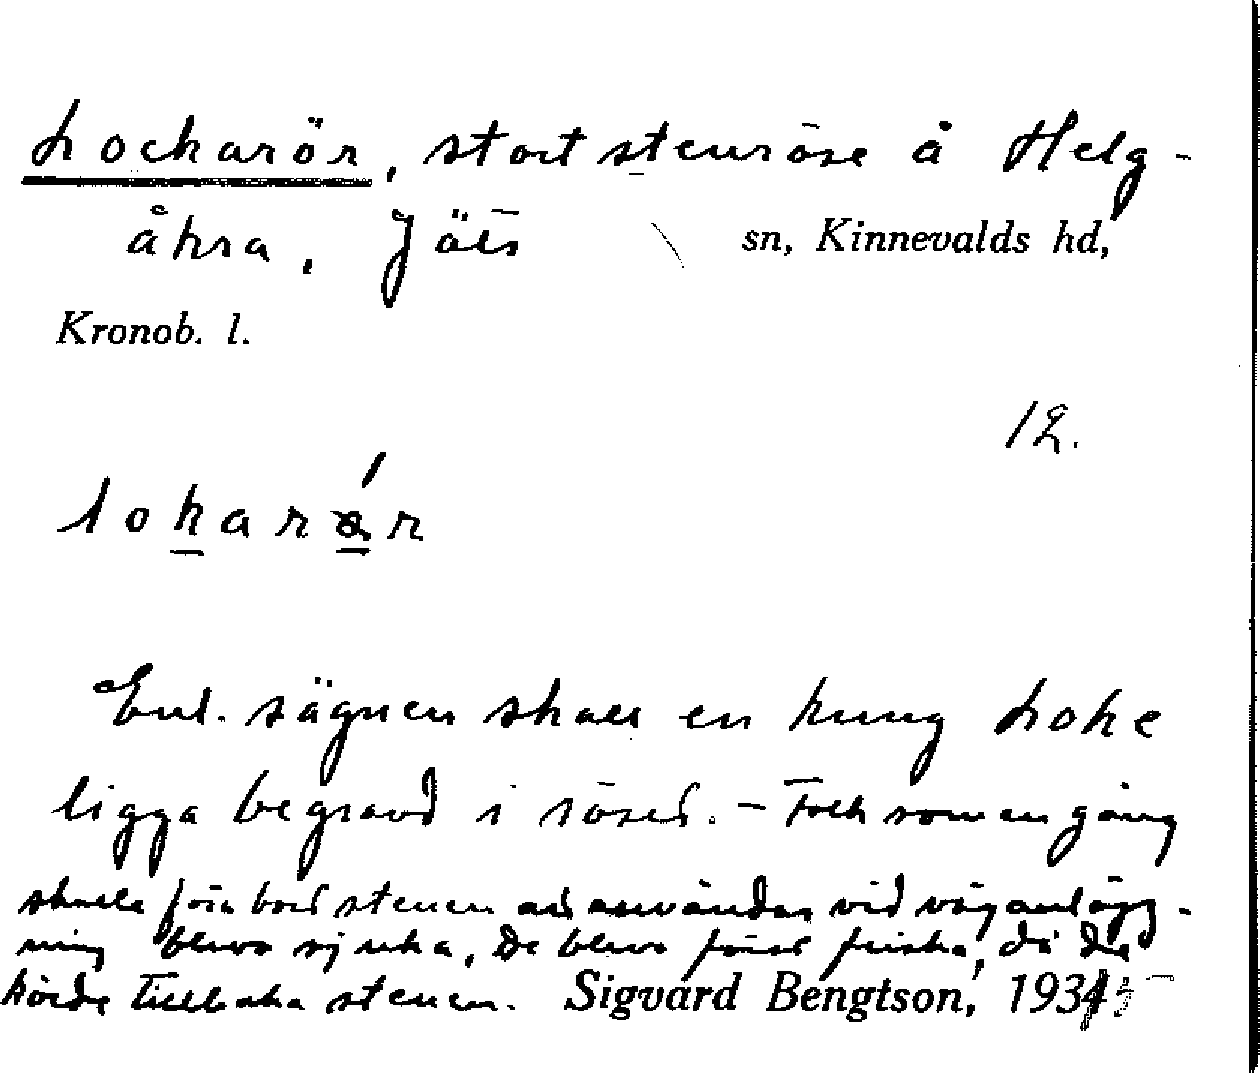 Lockarör, stort stenröse å Helg-
åkra, Jäts sn, Kinnevalds hd,
Kronob. l.
12.
lokarör
Enl. sägnen skall en kung Loke
ligga begravd i röset. – Folk som en gång
skulle föra bort stenen att användas vid väganlägg-
ning blevo sjuka. De blevo först friska, då de
körde tillbaka stenen. Sigvard Bengtson, 1935